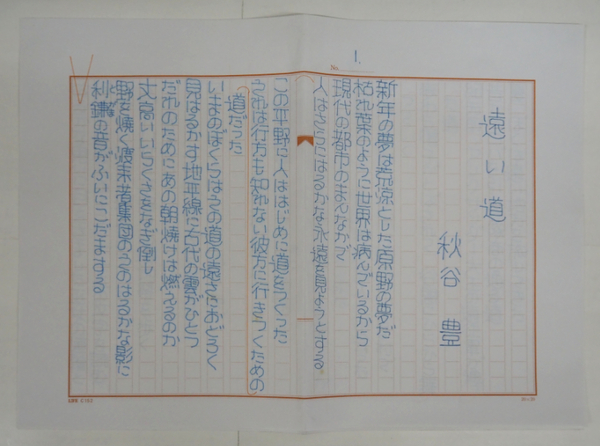 No. 1.
遠い道
秋谷 豊
新年の夢は荒涼とした原野の夢だ
枯れ葉のように世界は病んでいるから
現代の都市のまんなかで
人はさらにはるかな永遠を見ようとする
この平野に人ははじめに道をつくった
それは行方も知れない彼方に行きつくための
道だった
いまのぼくらはその道の遠さにおどろく
見はるかす地平線に古代の雲がひとつ
だれのためにあの朝焼けは燃えるのか
丈高いいらくさをなぎ倒し
野を焼く渡来者集団のそのはるかな影に
利鎌の音がふいにこだまする